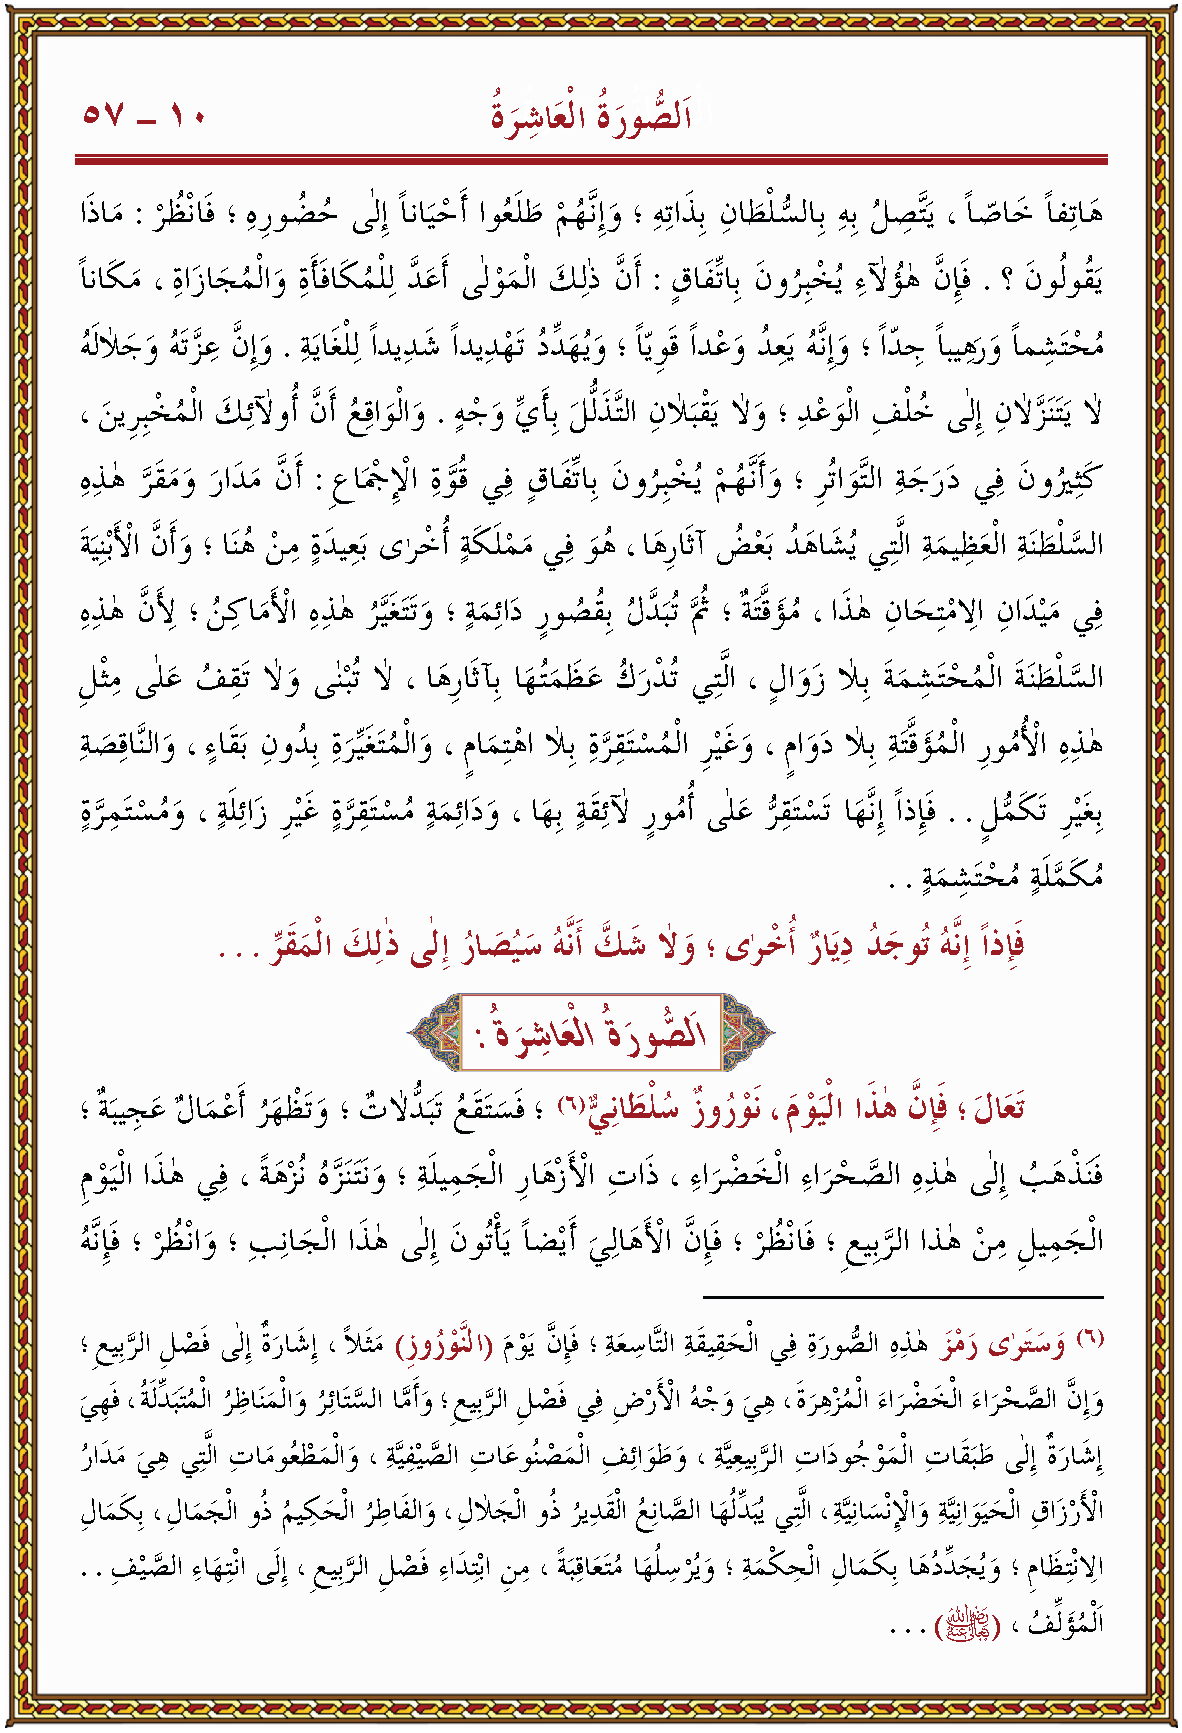 اَلصُّورَةُ الْعَاشِرَةُ ١٠ – ٥٧
هَاتِفاً خَاصّاً ، يَتَّصِلُ بِهِ بِالسُّلْطَانِ بِذَاتِهِ ؛ وَإِنَّهُمْ طَلَعُوا أَحْيَاناً إِلٰى حُضُورِهِ ؛ فَانْظُرْ : مَاذَا
يَقُولُونَ ؟ . فَإِنَّ هٰؤُلآٰءِ يُخْبِرُونَ بِاتِّفَاقٍ : أَنَّ ذٰلِكَ الْمَوْلٰى أَعَدَّ لِلْمُكَافَأَةِ وَالْمُجَازَاةِ ، مَكَاناً
مُحْتَشِماً وَرَهِيباً جِدّاً ؛ وَإِنَّهُ يَعِدُ وَعْداً قَوِيّاً ؛ وَيُهَدِّدُ تَهْدِيداً شَدِيداً لِلْغَايَةِ . وَإِنَّ عِزَّتَهُ وَجَلٰالَهُ
لٰا يَتَنَزَّلٰانِ إِلٰى خُلْفِ الْوَعْدِ ؛ وَلٰا يَقْبَلٰانِ التَّذَلُّلَ بِأَيِّ وَجْهٍ . وَالْوَاقِعُ أَنَّ أُولٰٓئِكَ الْمُخْبِرِينَ ،
كَثِيرُونَ فِي دَرَجَةِ التَّوَاتُرِ ؛ وَأَنَّهُمْ يُخْبِرُونَ بِاتِّفَاقٍ فِي قُوَّةِ الْإِجْمَاعِ : أَنَّ مَدَارَ وَمَقَرَّ هٰذِهِ
السَّلْطَنَةِ الْعَظِيمَةِ الَّتِي يُشَاهَدُ بَعْضُ آثَارِهَا ، هُوَ فِي مَمْلَكَةٍ أُخْرٰى بَعِيدَةٍ مِنْ هُنَا ؛ وَأَنَّ الْأَبْنِيَةَ
فِي مَيْدَانِ الِامْتِحَانِ هٰذَا ، مُؤَقَّتَةٌ ؛ ثُمَّ تُبَدَّلُ بِقُصُورٍ دَائِمَةٍ ؛ وَتَتَغَيَّرُ هٰذِهِ الْأَمَاكِنُ ؛ لِأَنَّ هٰذِهِ
السَّلْطَنَةَ الْمُحْتَشِمَةَ بِلٰا زَوَالٍ ، الَّتِي تُدْرَكُ عَظَمَتُهَا بِآثَارِهَا ، لٰا تُبْنٰى وَلٰا تَقِفُ عَلٰى مِثْلِ
هٰذِهِ الْأُمُورِ الْمُؤَقَّتَةِ بِلٰا دَوَامٍ ، وَغَيْرِ الْمُسْتَقِرَّةِ بِلٰا اهْتِمَامٍ ، وَالْمُتَغَيِّرَةِ بِدُونِ بَقَاءٍ ، وَالنَّاقِصَةِ
بِغَيْرِ تَكَمُّلٍ . . فَإِذاً إِنَّهَا تَسْتَقِرُّ عَلٰى أُمُورٍ لٰٓائِقَةٍ بِهَا ، وَدَائِمَةٍ مُسْتَقِرَّةٍ غَيْرِ زَائِلَةٍ ، وَمُسْتَمِرَّةٍ
مُكَمَّلَةٍ مُحْتَشِمَةٍ . .
فَإِذاً إِنَّهُ تُوجَدُ دِيَارٌ أُخْرٰى ؛ وَلٰا شَكَّ أَنَّهُ سَيُصَارُ إِلٰى ذٰلِكَ الْمَقَرِّ . . .
اَلصُّورَةُ الْعَاشِرَةُ :
تَعَالَ ؛ فَإِنَّ هٰذَا الْيَوْمَ ، نَوْرُوزٌ سُلْطَانِيٌّ(٦) ؛ فَسَتَقَعُ تَبَدُّلٰاتٌ ؛ وَتَظْهَرُ أَعْمَالٌ عَجِيبَةٌ ؛
فَنَذْهَبُ إِلٰى هٰذِهِ الصَّحْرَاءِ الْخَضْرَاءِ ، ذَاتِ الْأَزْهَارِ الْجَمِيلَةِ ؛ وَنَتَنَزَّهُ نُزْهَةً ، فِي هٰذَا الْيَوْمِ
الْجَمِيلِ مِنْ هٰذَا الرَّبِيعِ ؛ فَانْظُرْ ؛ فَإِنَّ الْأَهَالِيَ أَيْضاً يَأْتُونَ إِلٰى هٰذَا الْجَانِبِ ؛ وَانْظُرْ ؛ فَإِنَّهُ
(٦) وَسَتَرٰى رَمْزَ هٰذِهِ الصُّورَةِ فِي الْحَقِيقَةِ التَّاسِعَةِ ؛ فَإِنَّ يَوْمَ (النَّوْرُوزِ) مَثَلاً ، إِشَارَةٌ إِلٰى فَصْلِ الرَّبِيعِ ؛
وَإِنَّ الصَّحْرَاءَ الْخَضْرَاءَ الْمُزْهِرَةَ ، هِيَ وَجْهُ الْأَرْضِ فِي فَصْلِ الرَّبِيعِ ؛ وَأَمَّا السَّتَائِرُ وَالْمَنَاظِرُ الْمُتَبَدِّلَةُ ، فَهِيَ
إِشَارَةٌ إِلٰى طَبَقَاتِ الْمَوْجُودَاتِ الرَّبِيعِيَّةِ ، وَطَوَائِفِ الْمَصْنُوعَاتِ الصَّيْفِيَّةِ ، وَالْمَطْعُومَاتِ الَّتِي هِيَ مَدَارُ
الْأَرْزَاقِ الْحَيَوَانِيَّةِ وَالْإِنْسَانِيَّةِ ، الَّتِي يُبَدِّلُهَا الصَّانِعُ الْقَدِيرُ ذُو الْجَلٰالِ ، وَالْفَاطِرُ الْحَكِيمُ ذُو الْجَمَالِ ، بِكَمَالِ
الِانْتِظَامِ ؛ وَيُجَدِّدُهَا بِكَمَالِ الْحِكْمَةِ ؛ وَيُرْسِلُهَا مُتَعَاقِبَةً ، مِنِ ابْتِدَاءِ فَصْلِ الرَّبِيعِ ، إِلَى انْتِهَاءِ الصَّيْفِ . .
اَلْمُؤَلِّفُ ، (رَضِيَ اللهُ تَعَالٰى عَنْهُ) . . .